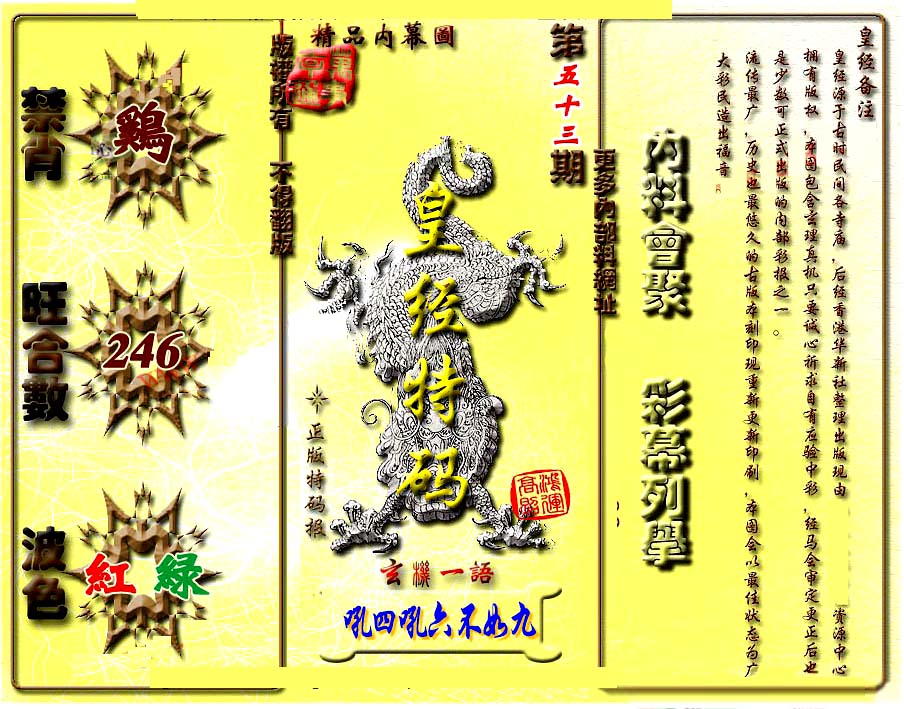 精品内幕圖
第五十三期
版權所有 不得翻版
更多內部料網址
禁肖
鷄
旺合數
246
波色
紅 綠
皇经特码
正版特码报
鴻運高照
玄機一語
吼四吼六不如九
內料會聚
彩幕列舉
皇经备注
皇经源于古时民间各寺庙,后经香港华新社整理出版现由 資源中心
拥有版权,本图包含玄理真机只要诚心祈求自有应验中彩,经马会审定更正后也
是少数可正式出版的内部彩报之一。
流传最广,历史也最悠久的古版本刻印现重新更新印刷,本图会以最佳状态为广
大彩民造出福音